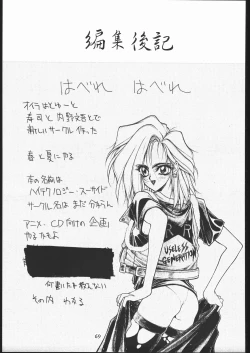 編集後記
はべれ はべれ
オイラはとゅーと
春司と内野文吾とで
新しいサークル作った
春と夏にやる
本の名前は
ハイテクノロジー・スーサイド
サークル名は まだ分からん
アニメ・CD向けの企画
やるかもよ
何書いたか教えない
その内 わかる
USELESS
GENERATION
69